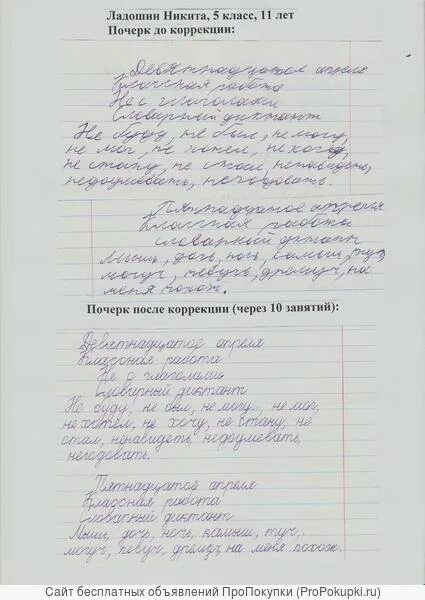 Ладошин Никита, 5 класс, 11 лет
Почерк до коррекции:
Девятнадцатое апреля
Классная работа
Не с глаголами
Словарный диктант
Не буду, не был, не могу,
не мог, не хотел, не хочу,
не стану, не стал, ненавидеть,
недоумевать, негодовать.
Пятнадцатое апреля
Классная работа
словарный диктант
Мышь, дочь, ночь, камыш, туч,
могуч, певуч, дремуч, на
меня похож.
Почерк после коррекции (через 10 занятий):
Девятнадцатое апреля
Классная работа
Не с глаголами
Словарный диктант
Не буду, не был, не могу, не мог,
не хотел, не хочу, не стану, не
стал, ненавидеть, недоумевать,
негодовать.
Пятнадцатое апреля
Классная работа
Словарный диктант
Мыши, дочь, ночь, камыш, туч,
могуч, певуч, дремуч, на меня похож.
Сайт бесплатных объявлений ПроПокупки (ProPokupki.ru)